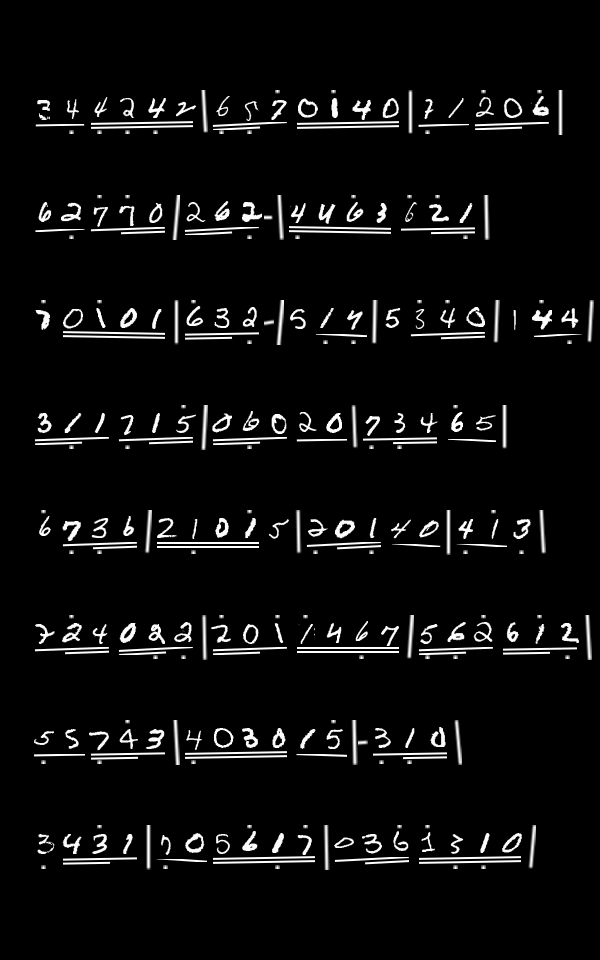 344242|6570140|71206
62770|262-|4463621
70101|632-|517|5340|144
311715|06020|73465
6736|21015|20140|413
724022|2011467|562612
55743|403015|-310
3431|705617|0361310